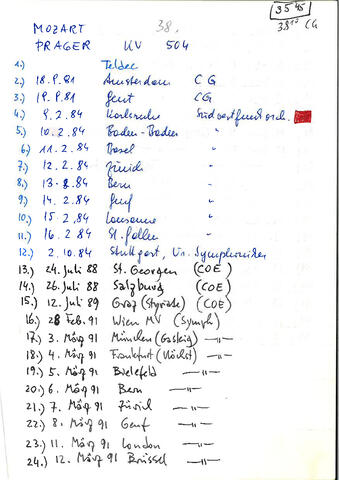 35'45
MOZART 38. 38'10 CG
PRAGER KV 504
1.) Teldec
2.) 18.9.81 Amsterdam CG
3.) 19.9.81 Gent CG
4.) 9.2.84 Karlsruhe Südwestfunkorch.
5.) 10.2.84 Baden-Baden "
6.) 11.2.84 Basel "
7.) 12.2.84 Zürich "
8.) 13.2.84 Bern "
9.) 14.2.84 Genf "
10.) 15.2.84 Lausanne "
11.) 16.2.84 St. Gallen "
12.) 2.10.84 Stuttgart, Symphoniker
13.) 24. Juli 88 St. Georgen (COE)
14.) 26. Juli 88 Salzburg (COE)
15.) 12. Juli 89 Graz (Styriarte) (COE)
16.) 28 Feb. 91 Wien MV (Symph)
17.) 3. März 91 München (Gasteig) —"—
18.) 4. März 91 Frankfurt (Höchst) —"—
19.) 5. März 91 Bielefeld —"—
20.) 6. März 91 Bern —"—
21.) 7. März 91 Zürich —"—
22.) 8. März 91 Genf —"—
23.) 11. März 91 London —"—
24.) 12. März 91 Brüssel —"—